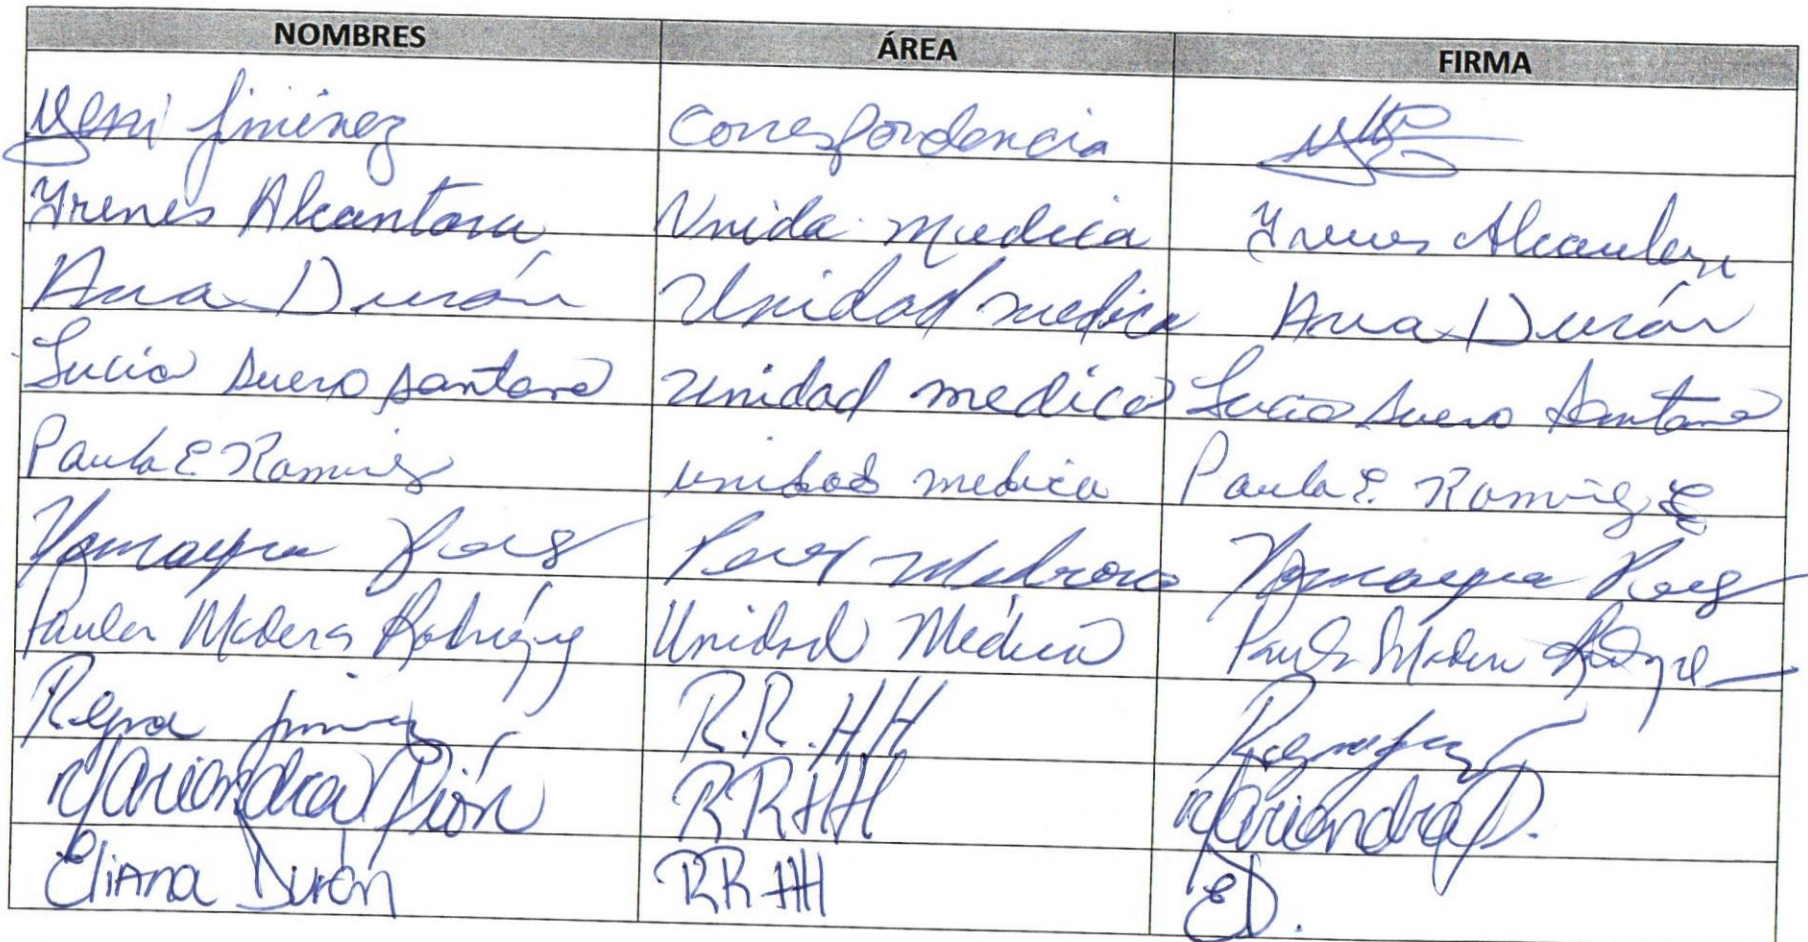 NOMBRES ÁREA FIRMA
Yeni Jiménez Correspondencia
Yrenes Alcantara Unida medica Yrenes Alcantara
Ana Durán Unidad medica Ana Durán
Lucia Suero Santana Unidad medica Lucia Suero Santana
Paula E Ramirez unidad medica Paula E. Ramirez
Yomayra Yomayra
Paula Madera Rodríguez Unidad Médica Paula Madera
Reyna Jiménez R.R.HH
Mariandra Pión RRHH Mariandra P.
Eliana Durán RRHH ED.